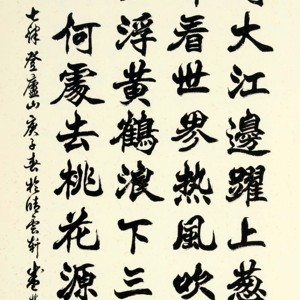 大江邊躍上葱
看世界熱風吹
浮黃鶴浪下三
何處去桃花源
七律登廬山庚子春於晴雲軒